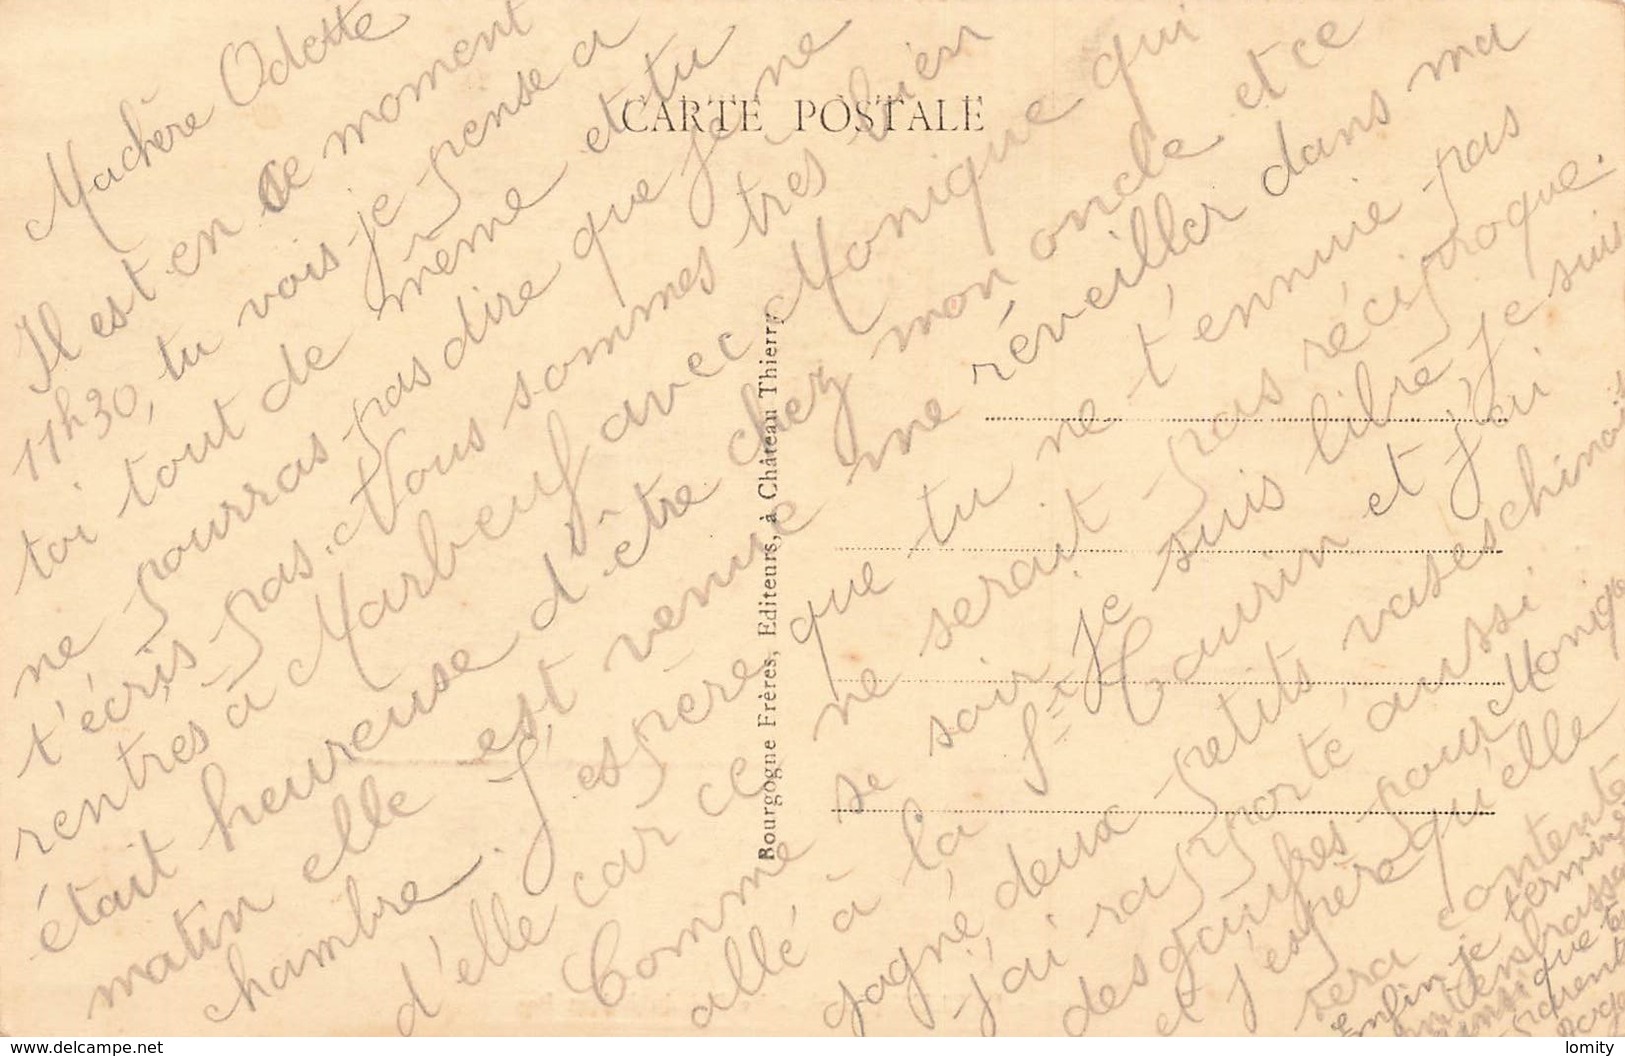 CARTE POSTALE
Bourgogne Frères, Editeurs, à Château Thierry
Ma chère Odette
Il est en ce moment
11h30, tu vois je pense a
toi tout de même et tu
ne pourras pas dire que je ne
t'écris pas. Nous sommes très bien
rentrés à Marbeuf avec Monique qui
était heureuse d'être chez mon oncle et ce
matin elle est venue me réveiller dans ma
chambre. J'espère que tu ne t'ennuie pas
d'elle car ce ne serait pas réciproque.
Comme se soir je suis libre, je suis
allé à la St Taurin et j'ai
gagné deux petits vases chinois
j'ai rapporté aussi
des gaufres pour Monique
et j'espère qu'elle
sera contente
Enfin je termine
en t'embrassant
ainsi que tes
parents
delcampe.net
lomity